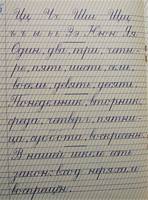 Цц Чч Шш Щщ
ъ ы ь Ээ Юю Яя
Один, два, три, четы-
ре, пять, шесть, семь,
восемь, девять, десять.
Понедельник, вторник,
среда, четверг, пятни-
ца, суббота, воскресенье.
В нашей школе есть
закон: вход неряхам
воспрещён.